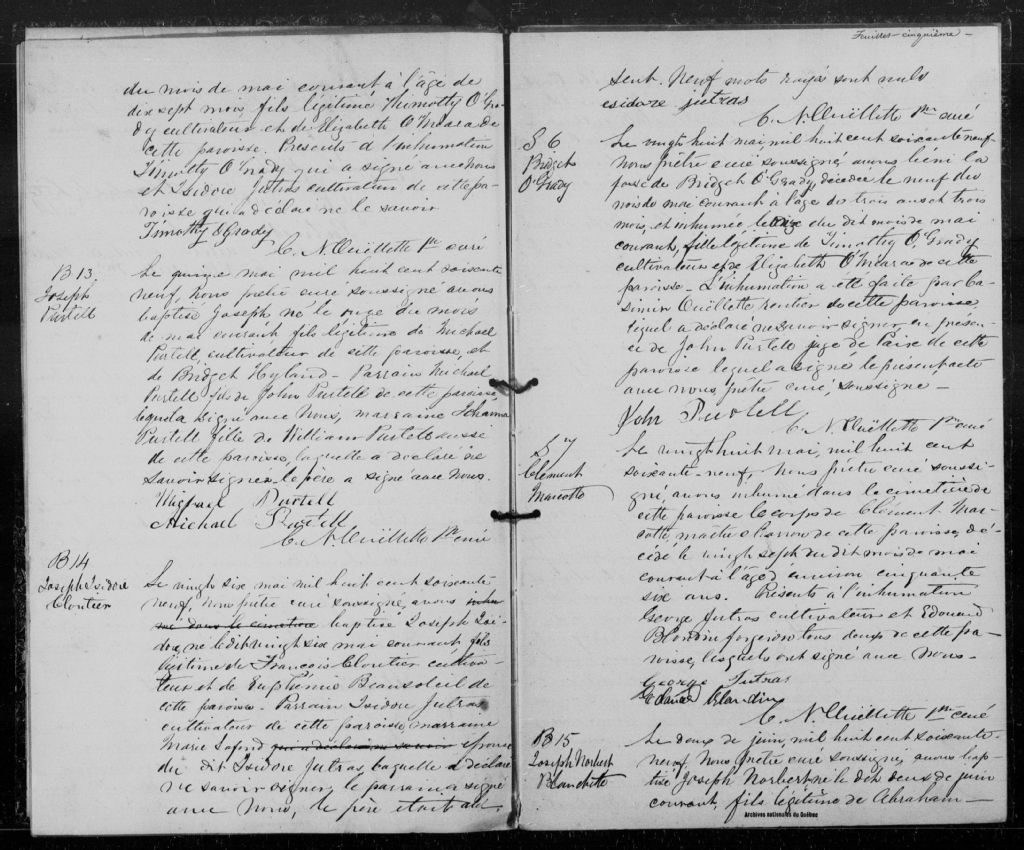 du mois de mai courant à l'âge de
dix sept mois, fils légitime Thimotty O'Gra-
dy cultivateur et de Elizabeth O'Meara de
cette paroisse. Présents à l'inhumation
Timotty O'Grady qui a signé avec nous
et Isidore Jutras cultivateur de cette pa-
roisse qui a déclaré ne le savoir
Timotty O Grady
C. N. Ouëllette Ptre curé
B 13
Joseph
Purtell
Le quinze mai mil huit cent soixante
neuf, Nous prêtre curé soussigné avons
baptisé Joseph né le onze du mois
de mai courant fils légitime de Michael
Purtell, cultivateur de cette paroisse, et
de Bridget Hyland - Parrain Michael
Purtell fils de John Purtell de cette paroisse,
lequel a signé avec Nous, marraine Johanna
Purtell fille de William Purtell aussi
de cette paroisse, laquelle a déclaré ne
savoir signer, le père a signé avec Nous.
Michael Purtell
Michael Purtell
C. N. Ouëllette Ptre curé
B 14
Joseph Isidore
Cloutier
Le vingt six mai mil huit cent soixante
neuf, Nous prêtre curé soussigné, avons inhu
mé dans le cimetière baptisé Joseph Isi-
dore, né le dit vingt six mai courant, fils
légitime de François Cloutier cultiva-
teur et de Euphémie Beausoleil de
cette paroisse. Parrain Isidore Jutras
cultivateur de cette paroisse, marraine
Marie Laford qui a déclaré ne savoir épouse
du dit Isidore Jutras, laquelle a déclaré
ne savoir signer, le parrain a signé
avec Nous, le père étant ab
Feuillet cinquième -
sent. Neuf mots rayés sont nuls
esidore jutras
C. N. Ouëllette Ptre curé
S 6
Bridget
O'Grady
Le vingt huit mai, mil huit cent soixante neuf
nous prêtre curé soussigné avons béni la
fosse de Bridget O'Grady, décédée le neuf du
mois de mai courant à l'âge de trois ans et trois
mois, et inhumée le onze du dit mois de mai
courant, fille légitime de Timotty O'Grady
cultivateur et de Elizabeth O'Meara de cette
paroisse - L'inhumation a été faite par Ca-
simir Ouëllette rentier de cette paroisse
lequel a déclaré ne savoir signer, en présen-
ce de John Purtell juge de Paix de cette
paroisse lequel a signé le présent acte
avec nous prêtre curé, soussigné -
John Purtell
C. N. Ouëllette Ptre curé
S 7
Clément
Marcotte
Le vingt huit mai, mil huit cent
soixante-neuf, Nous prêtre curé soussi-
gné, avons inhumé dans le cimetière de
cette paroisse le corps de Clément Mar-
cotte, maître charron de cette paroisse, dé-
cédé le vingt sept du dit mois de mai
courant à l'âge d'environ cinquante
six ans. Présents à l'inhumation
George Jutras cultivateur et Edouard
Blondin forgeron tous deux de cette pa-
roisse, lesquels ont signé avec nous -
George Jutras
Edouard Blondin
C. N. Ouëllette Ptre curé
B 15
Joseph Norbert
Blanchette
Le deux de juin, mil huit cent soixante-
neuf, Nous prêtre curé soussigné, avons bap-
tisé Joseph Norbert né le dit deux de juin
courant, fils légitime de Abraham -
Archives nationales du Québec